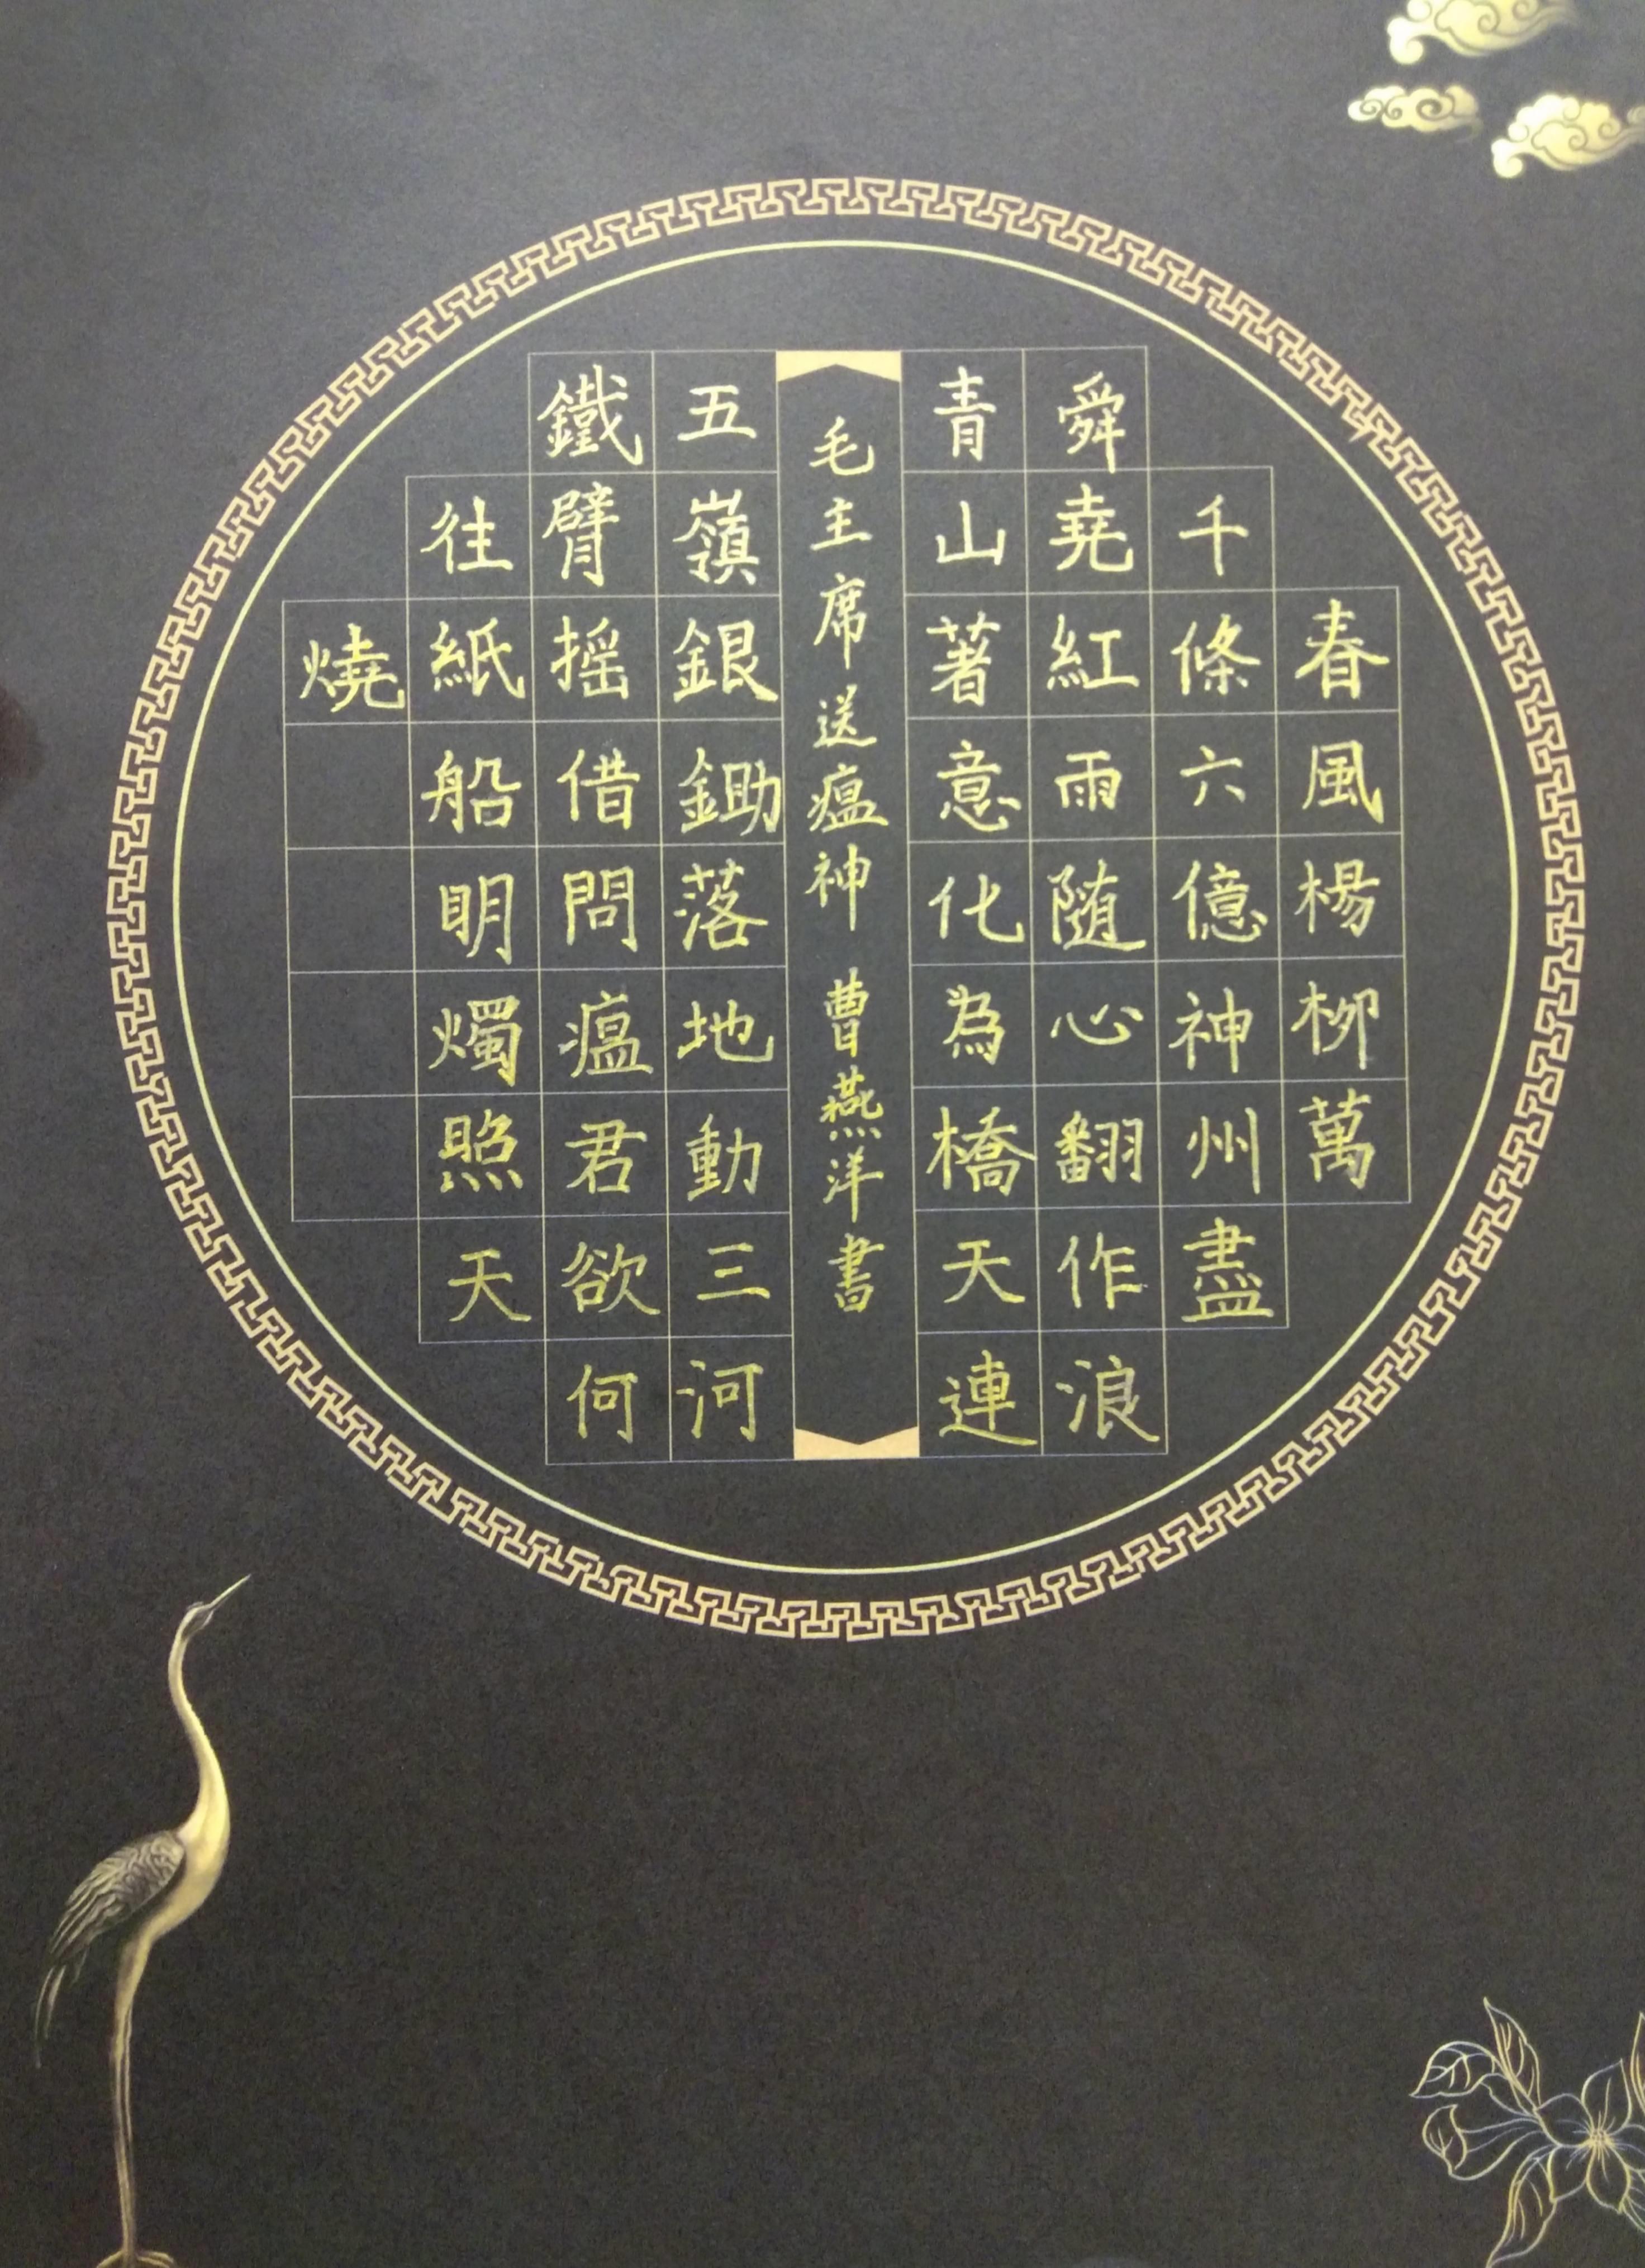 春風楊柳萬
千條六億神州盡
舜堯紅雨随心翻作浪
青山著意化為橋天連
毛主席送瘟神 曹燕洋書
五嶺銀鋤落地動三河
鐵臂摇借問瘟君欲何
往紙船明燭照天
燒